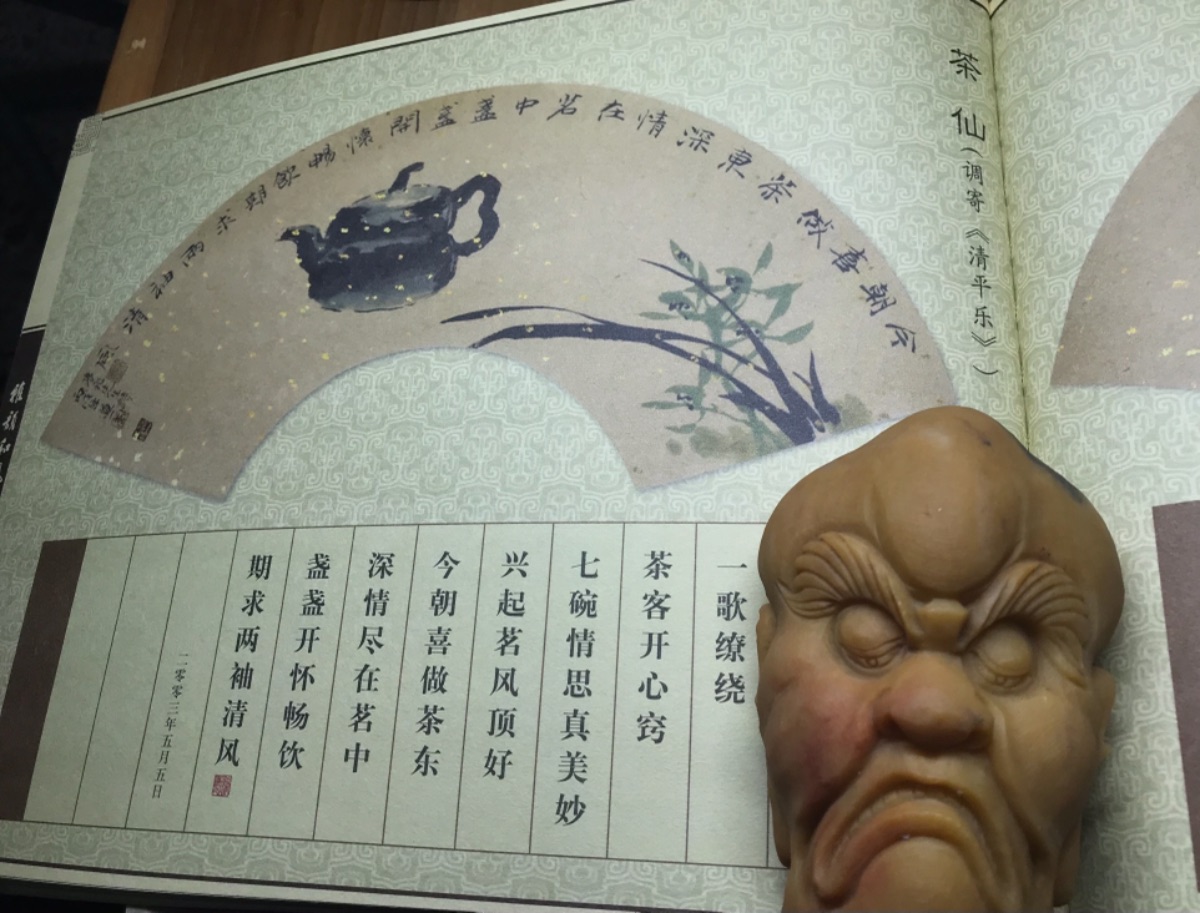 茶仙（调寄《清平乐》）
今朝喜做茶東深情在茗中盏盏開懷暢飲期求兩袖清風
一歌缭绕
茶客开心窍
七碗情思真美妙
兴起茗风顶好
今朝喜做茶东
深情尽在茗中
盏盏开怀畅饮
期求两袖清风
二零零三年五月五日